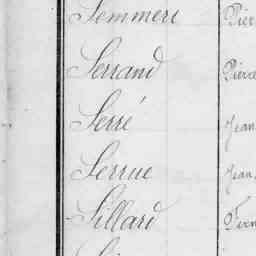 Semmeri
Serrand Pierre
Serré Jean
Serrue Jean
Sillard